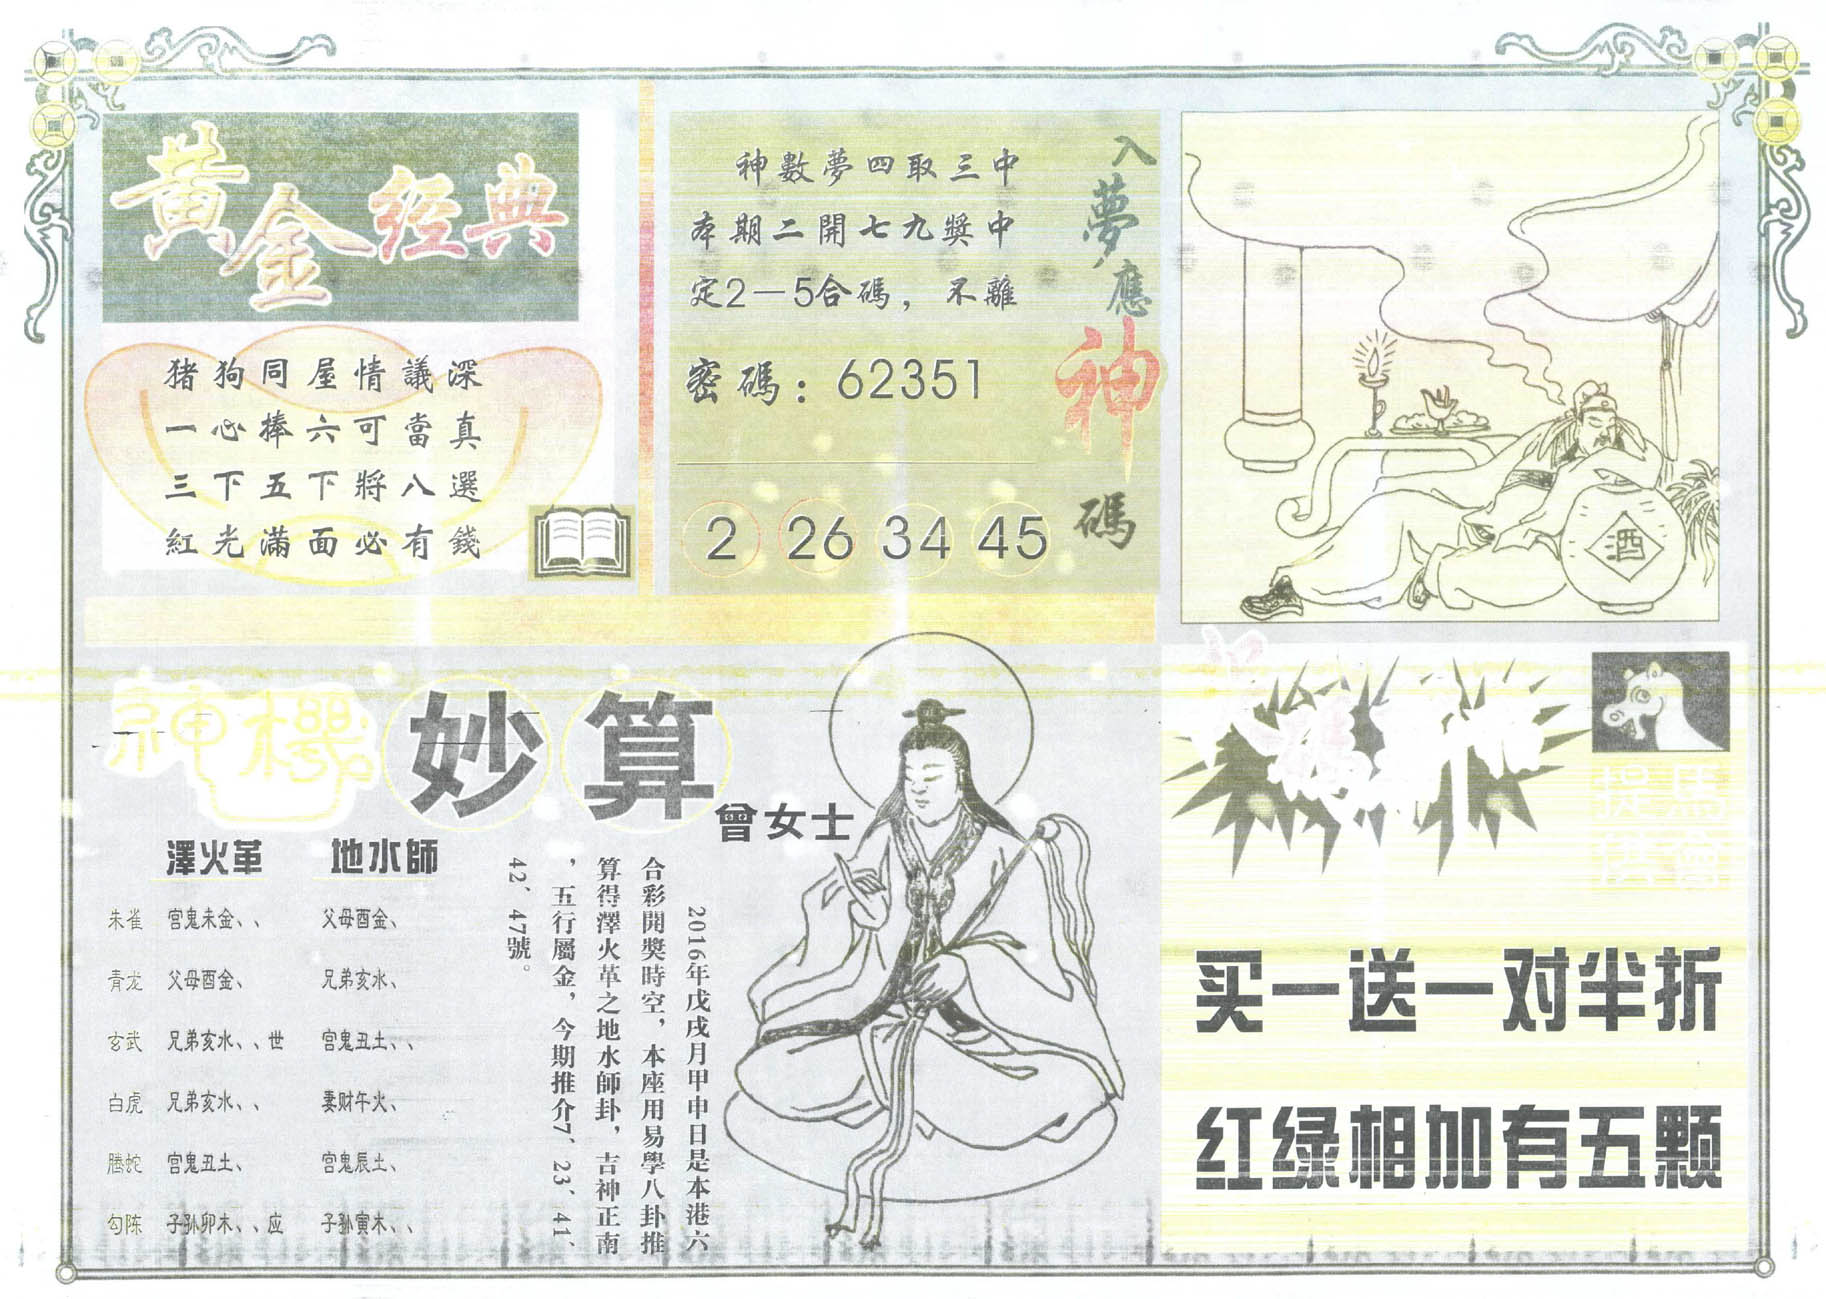 黃金经典
猪狗同屋情議深
一心捧六可當真
三下五下將八選
紅光滿面必有錢
神數夢四取三中
本期二開七九獎中
定2—5合碼，不離
密碼：62351
2 26 34 45
入夢應神碼
酒
神機妙算
曾女士
澤火革 地水師
朱雀 宫鬼未金、、 父母酉金、
青龙 父母酉金、 兄弟亥水、
玄武 兄弟亥水、、世 宫鬼丑土、、
白虎 兄弟亥水、、 妻财午火、
腾蛇 宫鬼丑土、 宫鬼辰土、
勾陈 子孙卯木、、应 子孙寅木、、
2016年戊戌月甲申日是本港六
合彩開獎時空，本座用易學八卦推
算得澤火革之地水師卦，吉神正南
，五行屬金，今期推介7、23、41、
42、47號。
馬會
提供
买一送一对半折
红绿相加有五颗